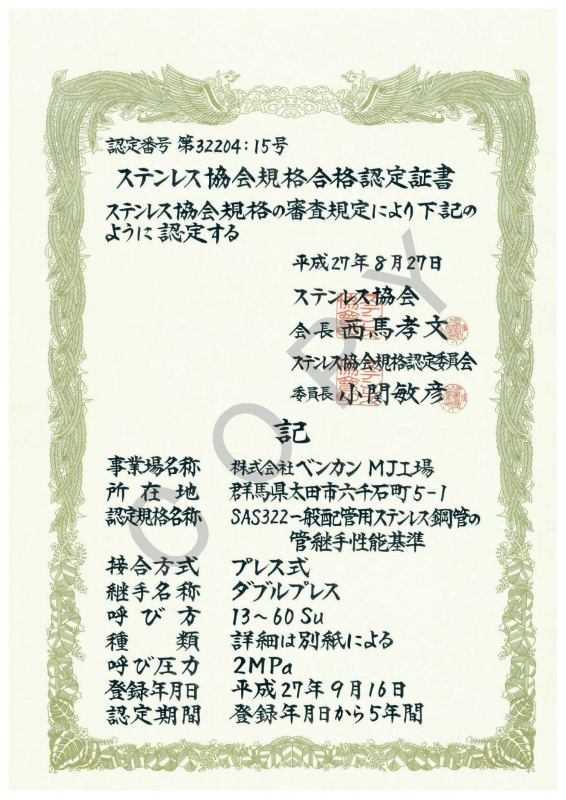 認定番号 第32204:15号
ステンレス協会規格合格認定証書
ステンレス協会規格の審査規定により下記の
ように認定する
平成27年8月27日
ステンレス協会
会長 西馬孝文
ステンレス協会規格認定委員会
委員長 小関敏彦
記
事業場名称 株式会社ベンカン MJ工場
所在地 群馬県太田市六千石町5-1
認定規格名称 SAS322一般配管用ステンレス鋼管の
管継手性能基準
接合方式 プレス式
継手名称 ダブルプレス
呼び方 13~60 Su
種類 詳細は別紙による
呼び圧力 2MPa
登録年月日 平成27年9月16日
認定期間 登録年月日から5年間
COPY